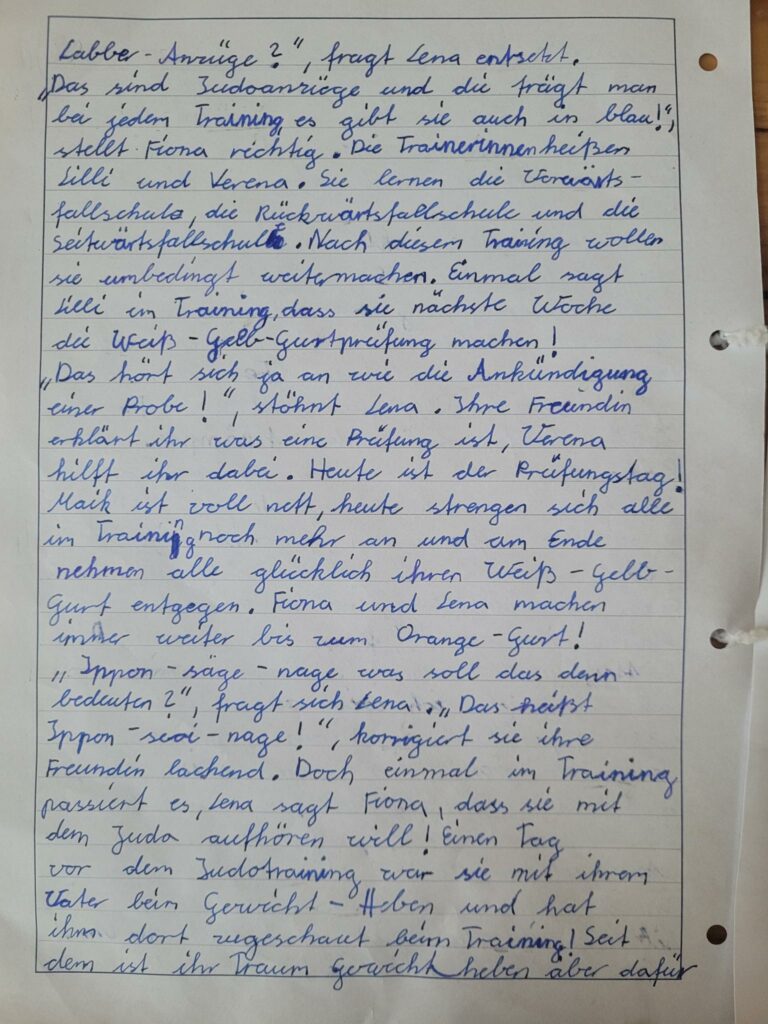 Labber-Anzüge?", fragt Lena entsetzt.
„Das sind Judoanzüge und die trägt man
bei jedem Training, es gibt sie auch in blau!",
stellt Fiona richtig. Die Trainerinnen heißen
Lilli und Verena. Sie lernen die Vorwärts-
fallschule, die Rückwärtsfallschule und die
Seitwärtsfallschule. Nach diesem Training wollen
sie umbedingt weitermachen. Einmal sagt
Lilli im Training, dass sie nächste Woche
die Weiß-Gelb-Gurtprüfung machen!
„Das hört sich ja an wie die Ankündigung
einer Probe!", stöhnt Lena. Ihre Freundin
erklärt ihr was eine Prüfung ist, Verena
hilft ihr dabei. Heute ist der Prüfungstag!
Maik ist voll nett, heute strengen sich alle
im Training noch mehr an und am Ende
nehmen alle glücklich ihren Weiß-Gelb-
Gurt entgegen. Fiona und Lena machen
immer weiter bis zum Orange-Gurt!
„Ippon-säge-nage was soll das denn
bedeuten?", fragt sich Lena. „Das heißt
Ippon-seoi-nage!", korrigiert sie ihre
Freundin lachend. Doch einmal im Training
passiert es, Lena sagt Fiona, dass sie mit
dem Judo aufhören will! Einen Tag
vor dem Judotraining war sie mit ihrem
Vater beim Gewicht-Heben und hat
ihm dort zugeschaut beim Training! Seit
dem ist ihr Traum Gewicht heben aber dafür